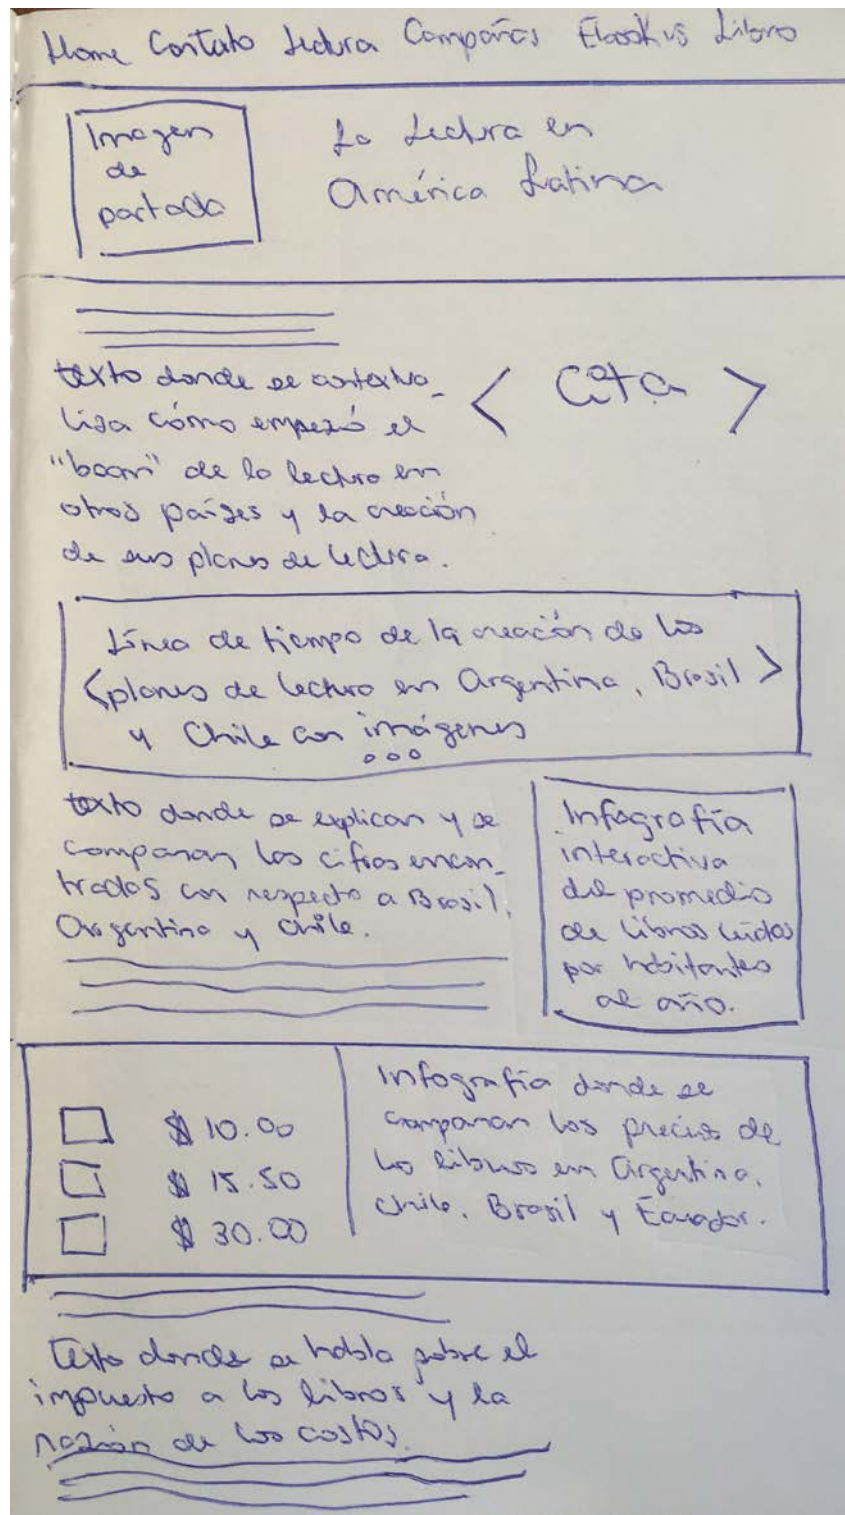 Home Contexto Lectura Campañas Ebook vs Libro
Imagen
de
portada
La Lectura en
América Latina
texto donde se contextua_
liza cómo empezó el
"boom" de la lectura en
otros países y la creación
de sus planes de lectura.
< Cita >
Línea de tiempo de la creación de los
< planes de lectura en Argentina, Brasil >
y Chile con imágenes
texto donde se explican y se
comparan las cifras encon_
tradas con respecto a Brasil,
Argentina y Chile.
Infografía
interactiva
del promedio
de libros leídos
por habitantes
al año.
$ 10.00
$ 15.50
$ 30.00
Infografía donde se
comparan los precios de
los libros en Argentina,
Chile, Brasil y Ecuador.
Texto donde se habla sobre el
impuesto a los libros y la
razón de los costos.